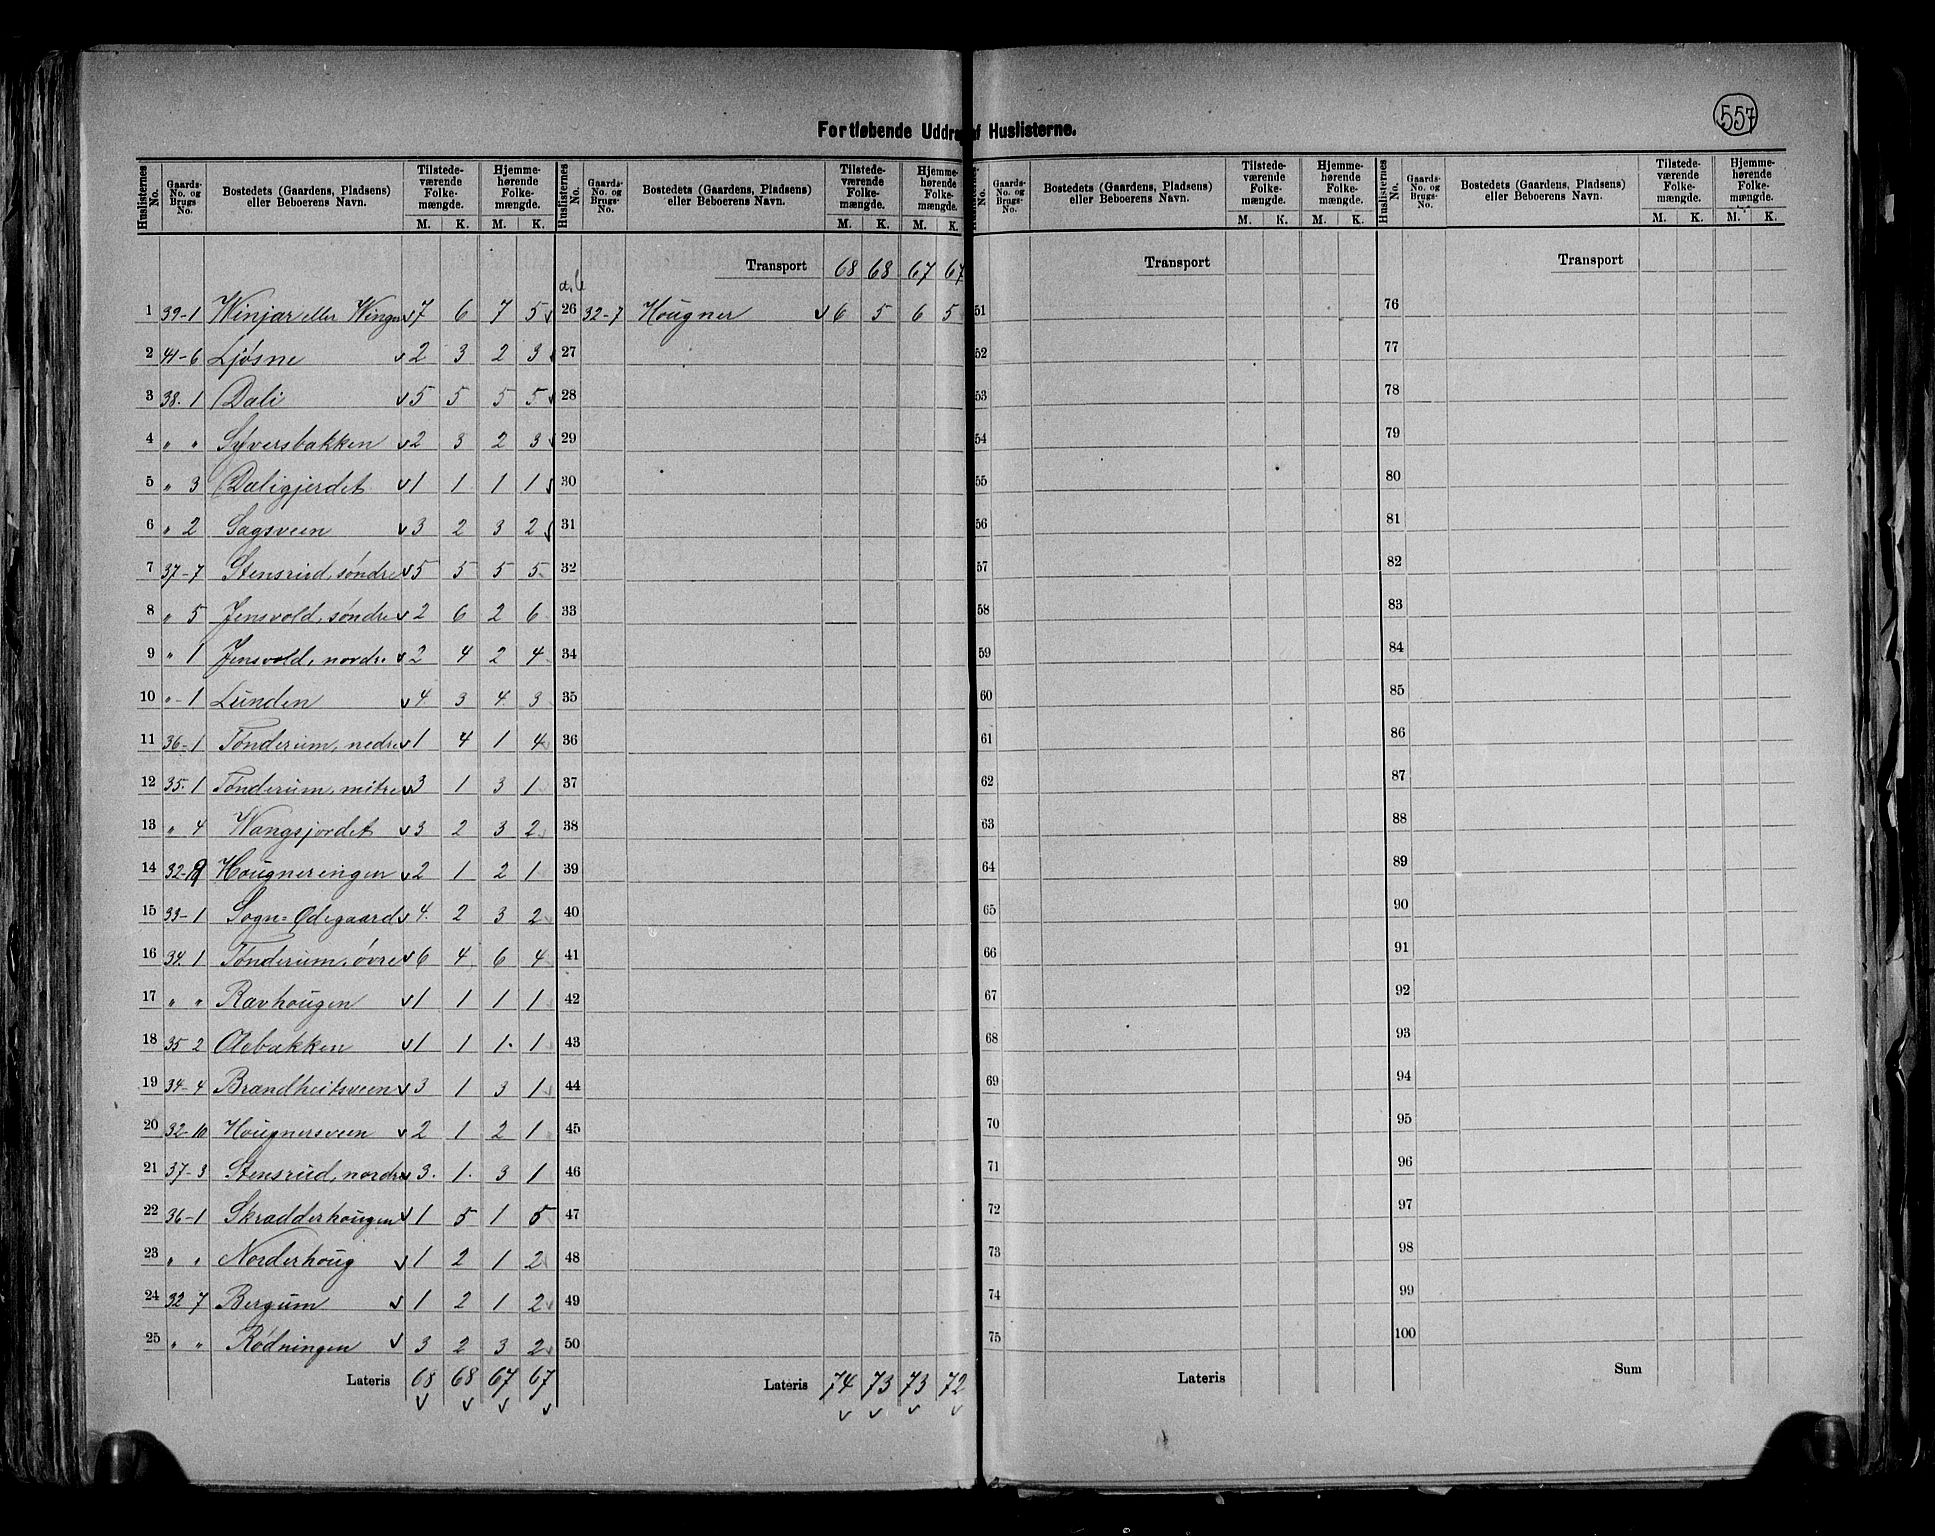 557
Fortløbende Uddra af Huslisterne.
Huslisternes No. Gaards-No. og Brugs-No. Bostedets (Gaardens, Pladsens) eller Beboerens Navn. Tilstedeværende Folkemængde. M. K. Hjemmehørende Folkemængde. M. K.
1 39-1 Winjar eller Winger 7 6 7 5
2 41-6 Ljøsne 2 3 2 3
3 38.1 Dæli 5 5 5 5
4 " " Syversbakken 2 3 2 3
5 " 3 Dæligjerdet 1 1 1 1
6 " 2 Sagsveen 3 2 3 2
7 37-7 Stensrud, søndre 5 5 5 5
8 " 5 Jensvold, søndre 2 6 2 6
9 " 1 Jensvold, nordre 2 4 2 4
10 "-1 Lunden 4 3 4 3
11 36-1 Tønderum, nedre 1 4 1 4
12 35.1 Tønderum, mitre 3 1 3 1
13 " 4 Wangsjordet 3 2 3 2
14 32- Hougnerengen 2 1 2 1
15 33-1 Sogn=Ødegaard 4. 2 3 2
16 34.1 Tønderum, øvre 6 4 6 4
17 " " Ravhougen 1 1 1 1
18 35 2 Olebakken 1 1 1. 1
19 34-4 Brandheitsveen 3 1 3 1
20 32-10 Hougnersveen 2 1 2 1
21 37-3 Stensrud, nordre 3. 1. 3 1
22 36-1 Skradderhougen 1 5 1 5
23 " " Norderhoug 1 2 1 2
24 32 7 Bergum 1 2 1 2
25 " " Rødningen 3 2 3 2
Lateris 68 68 67 67
Huslisternes No. Gaards-No. og Brugs-No. Bostedets (Gaardens, Pladsens) eller Beboerens Navn. Tilstedeværende Folkemængde. M. K. Hjemmehørende Folkemængde. M. K.
Transport 68 68 67 67
a. b
26 32-7 Hougner 6 5 6 5
27
28
29
30
31
32
33
34
35
36
37
38
39
40
41
42
43
44
45
46
47
48
49
50
Lateris 74 73 73 72
No. Gaards-No. og Brugs-No. Bostedets (Gaardens, Pladsens) eller Beboerens Navn. Tilstedeværende Folkemængde. M. K. Hjemmehørende Folkemængde. M. K.
Transport
51
52
53
54
55
56
57
58
59
60
61
62
63
64
65
66
67
68
69
70
71
72
73
74
75
Lateris
Huslisternes No. Gaards-No. og Brugs-No. Bostedets (Gaardens, Pladsens) eller Beboerens Navn. Tilstedeværende Folkemængde. M. K. Hjemmehørende Folkemængde. M. K.
Transport
76
77
78
79
80
81
82
83
84
85
86
87
88
89
90
91
92
93
94
95
96
97
98
99
100
Sum